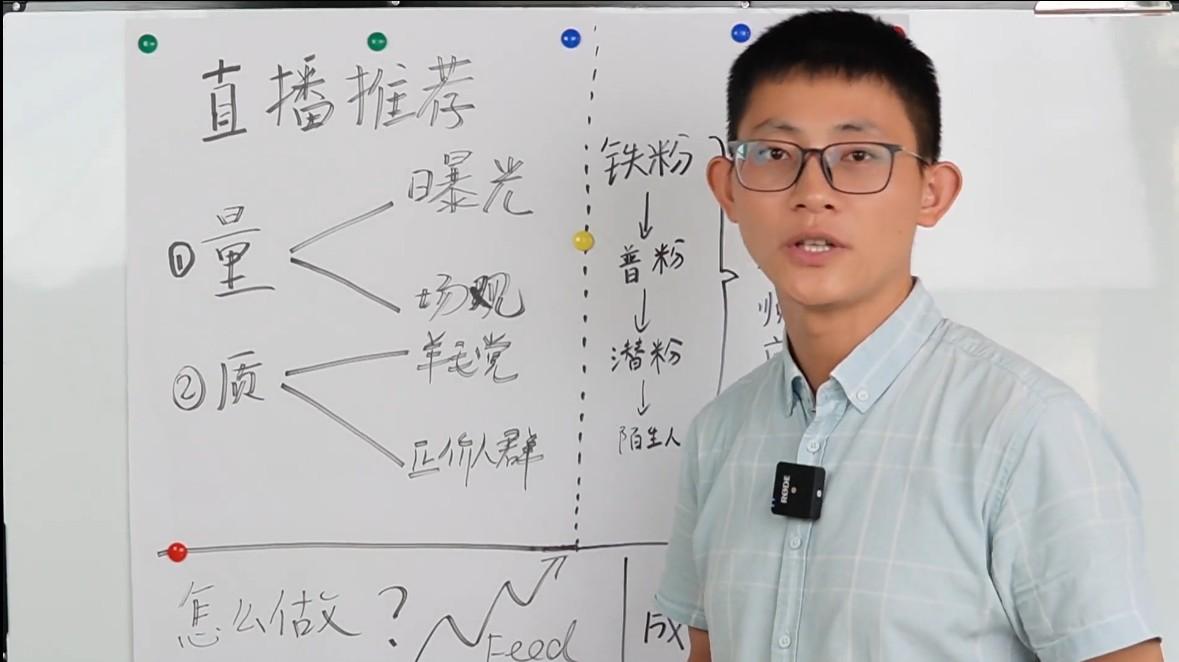 直播推荐
①量
曝光
场观
②质
羊毛党
正价人群
铁粉
↓
普粉
↓
潜粉
↓
陌生人
怎么做?
Feed
RØDE